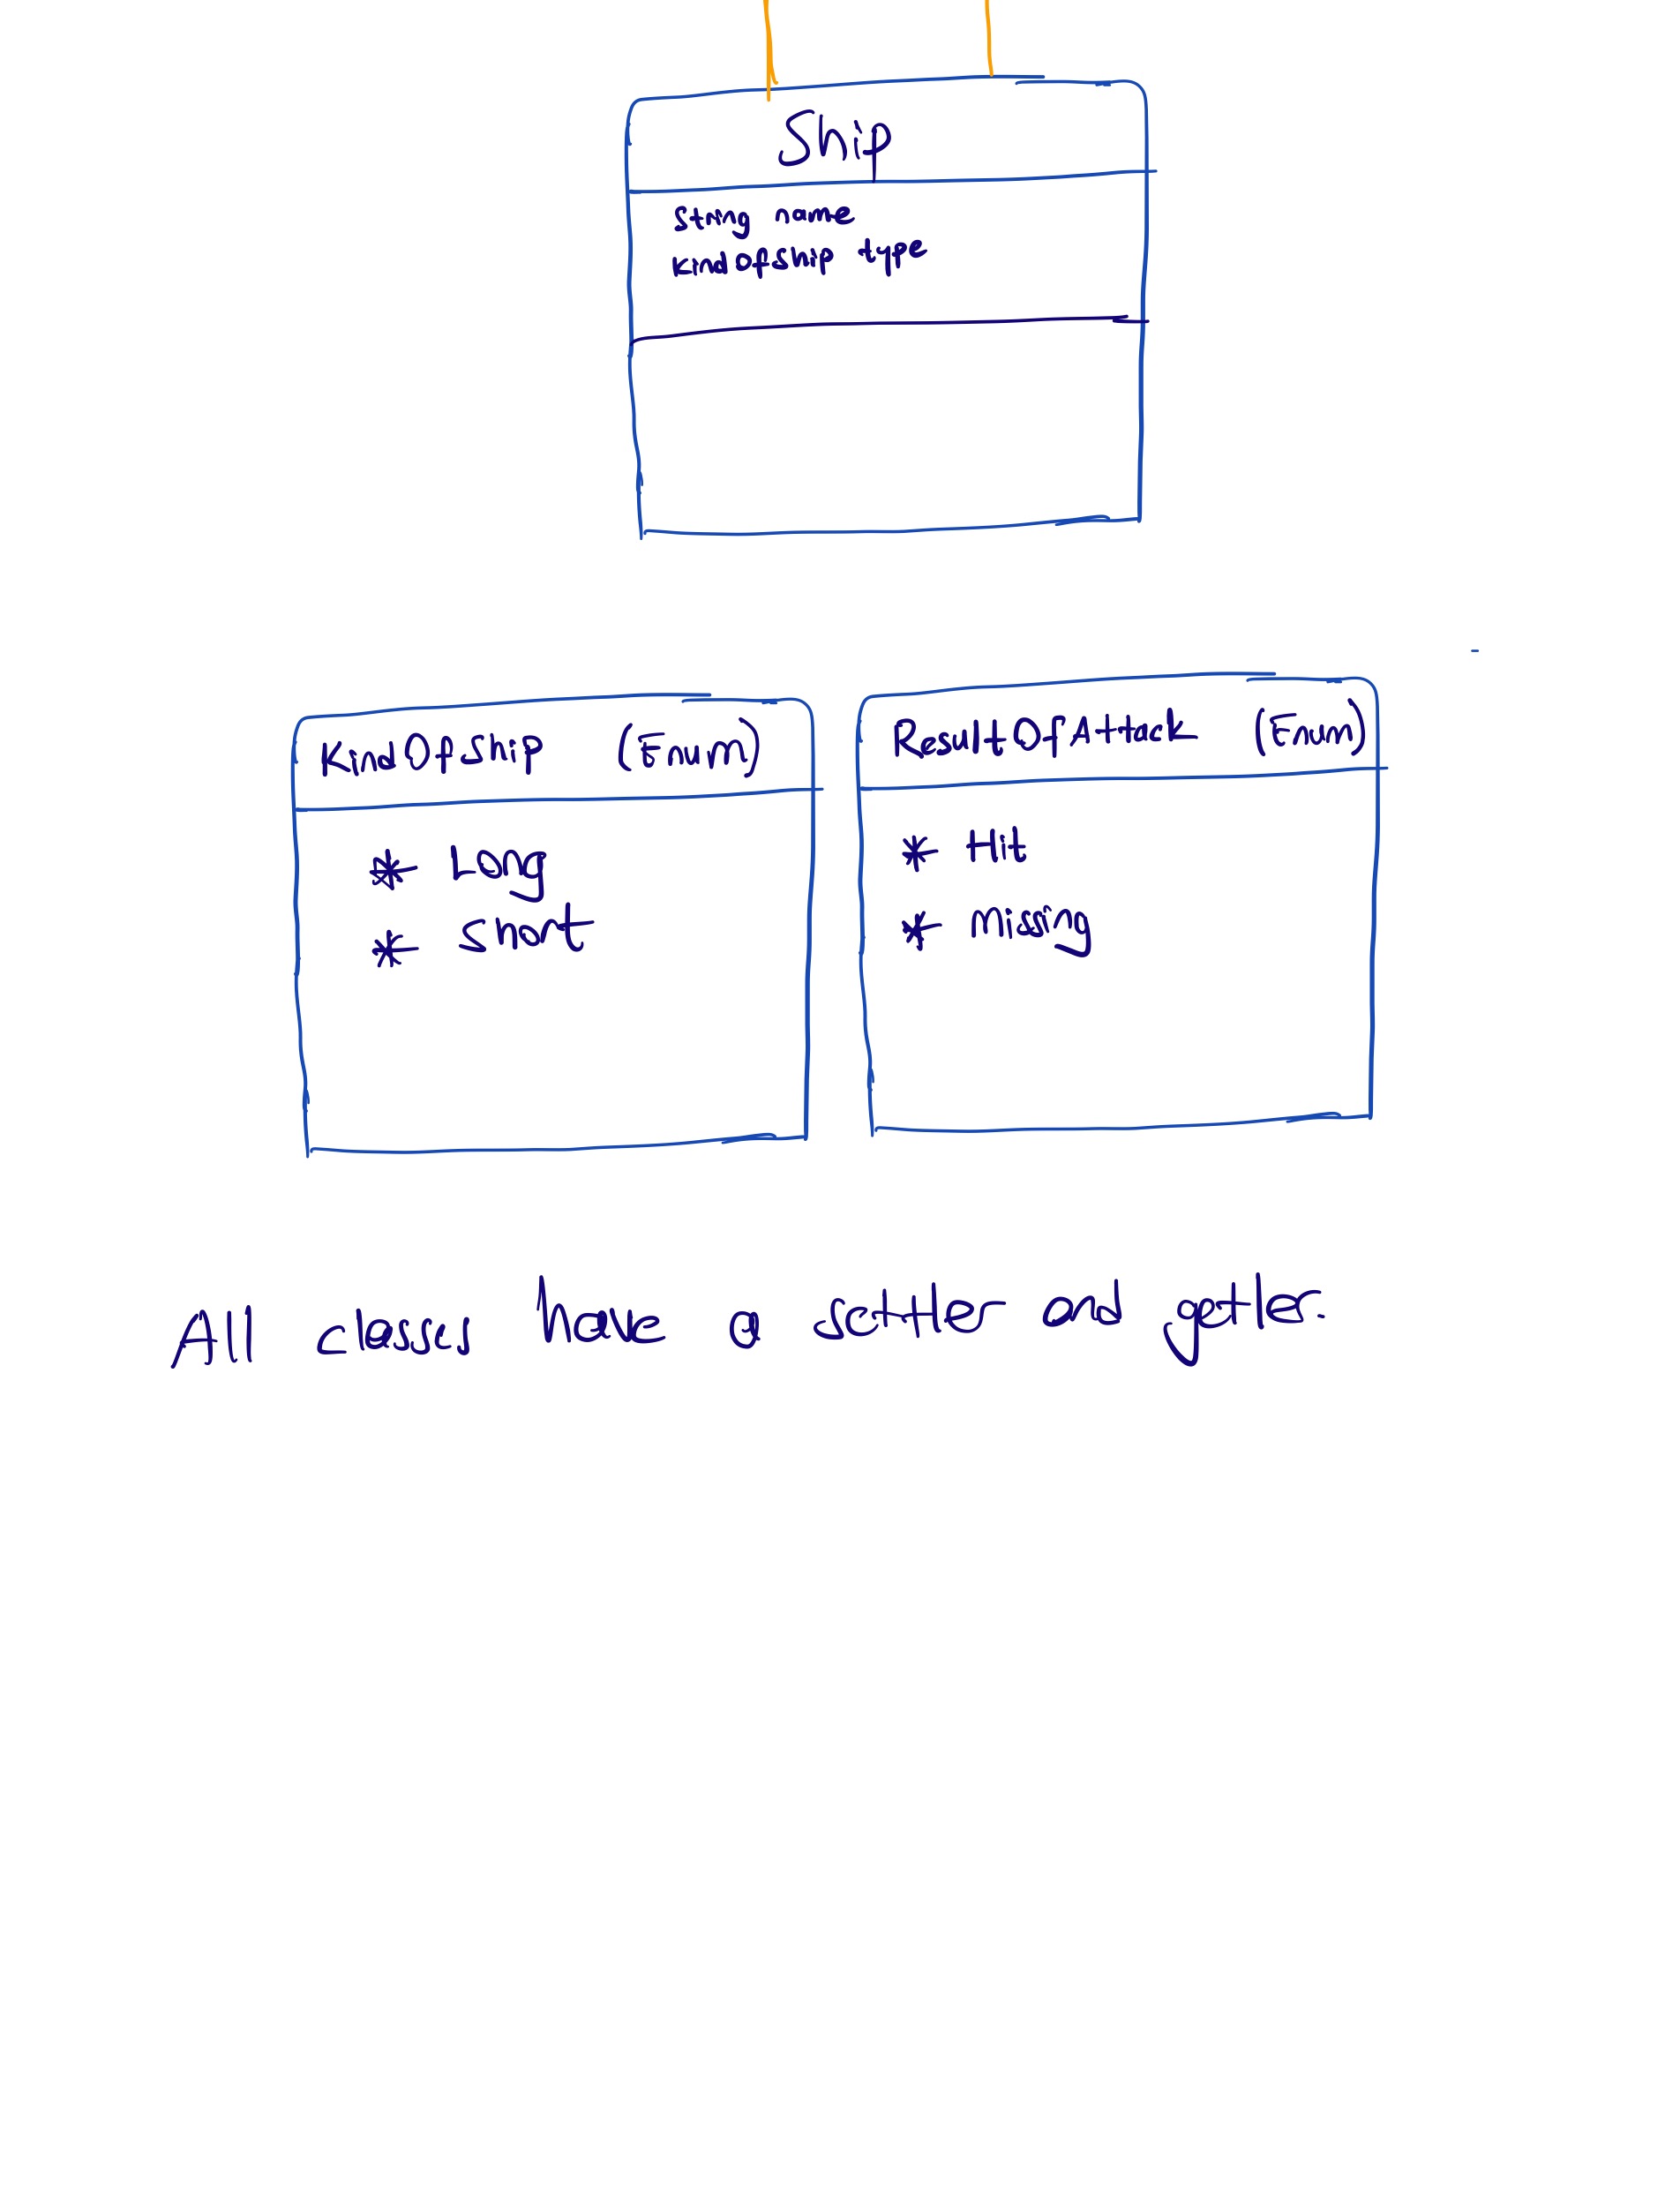 Ship
String name
KindOfShip type
KindOfShip (Enum)
* Long
* Short
ResultOfAttack (Enum)
* Hit
* Missing
All classes have a setter and getter.